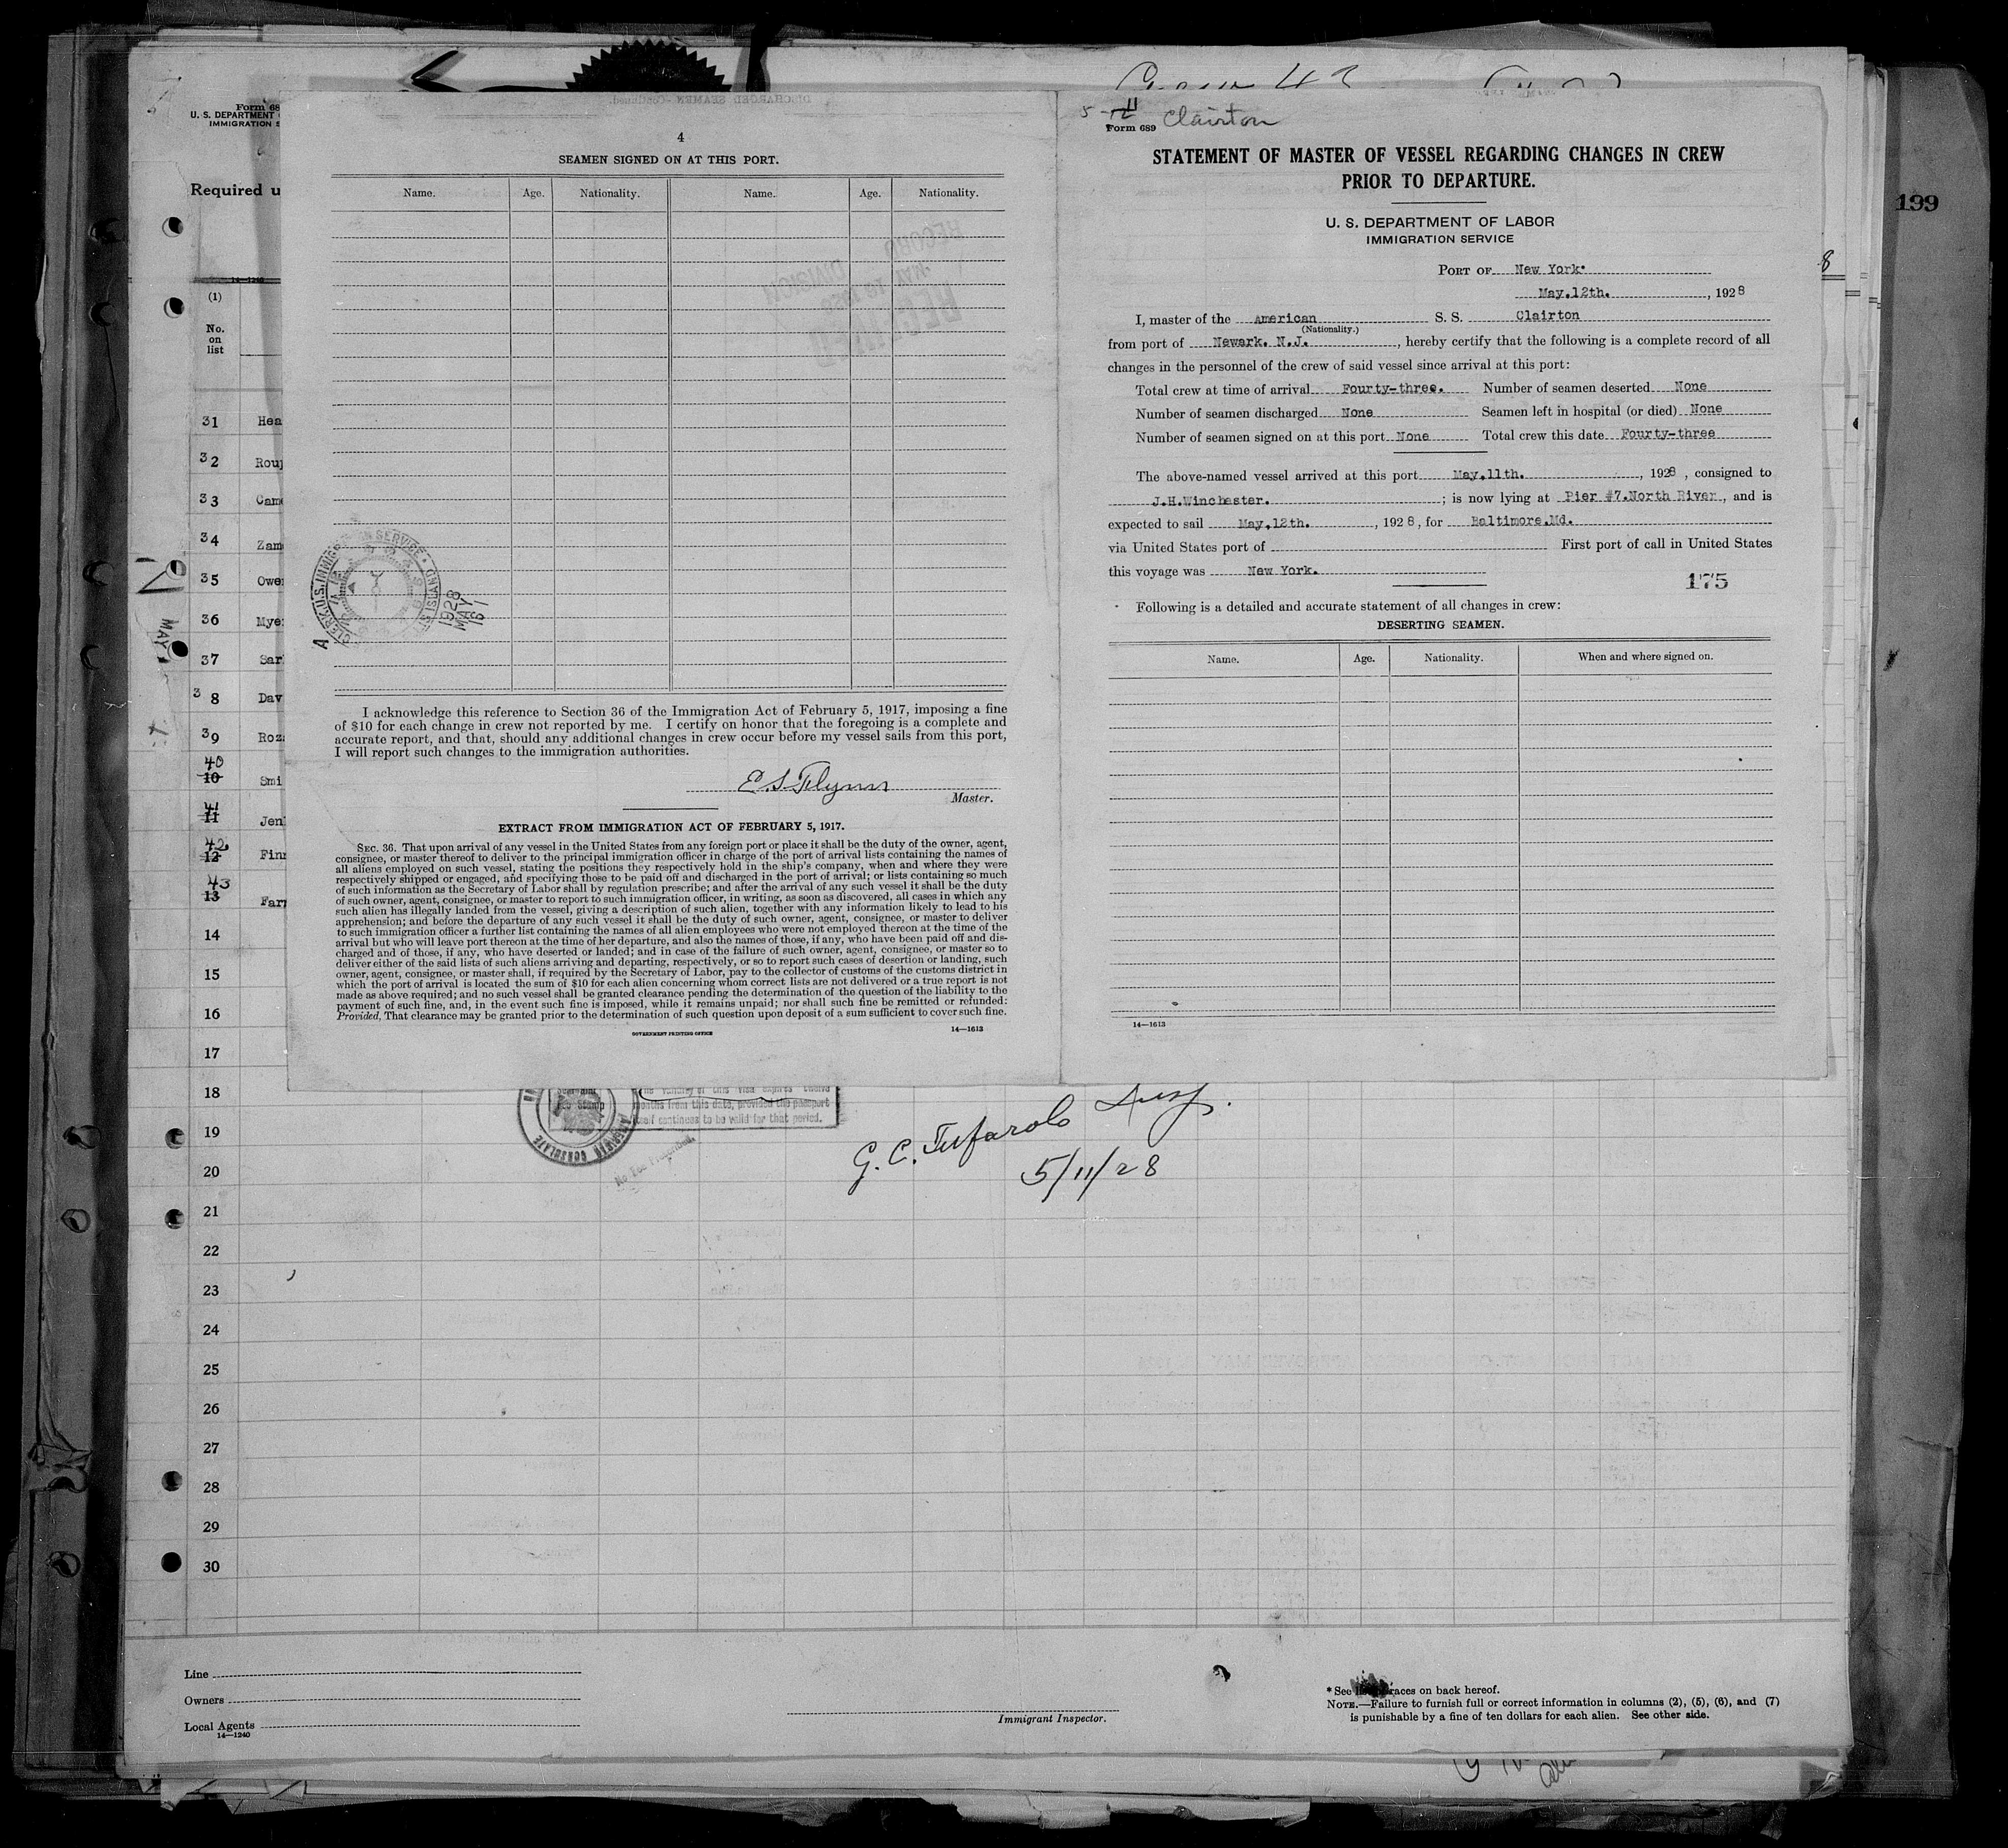 Form 68
U. S. DEPARTMENT
IMMIGRATION S
Required u
14—1240
(1)
No.
on
list
31 Hea
32 Rouj
33 Came
34 Zam
35 Owe
36 Mye
37 Sar
38 Dav
39 Roz
40
10 Smi
41
11 Jen
42
12 Finn
43
13 Farr
14
15
16
17
18
19
20
21
22
23
24
25
26
27
28
29
30
MAY
199
8
Crew 43
DISCHARGED SEAMEN—Continued.
4
SEAMEN SIGNED ON AT THIS PORT.
Name. Age. Nationality. Name. Age. Nationality.
RECORD
DIVISION
CLERK, U.S. IMMIGRATION SERVICE
ELLIS ISLAND
1928
MAY
16
A
I acknowledge this reference to Section 36 of the Immigration Act of February 5, 1917, imposing a fine
of $10 for each change in crew not reported by me. I certify on honor that the foregoing is a complete and
accurate report, and that, should any additional changes in crew occur before my vessel sails from this port,
I will report such changes to the immigration authorities.
E.S. Flynn
Master.
EXTRACT FROM IMMIGRATION ACT OF FEBRUARY 5, 1917.
SEC. 36. That upon arrival of any vessel in the United States from any foreign port or place it shall be the duty of the owner, agent,
consignee, or master thereof to deliver to the principal immigration officer in charge of the port of arrival lists containing the names of
all aliens employed on such vessel, stating the positions they respectively hold in the ship's company, when and where they were
respectively shipped or engaged, and specifying those to be paid off and discharged in the port of arrival; or lists containing so much
of such information as the Secretary of Labor shall by regulation prescribe; and after the arrival of any such vessel it shall be the duty
of such owner, agent, consignee, or master to report to such immigration officer, in writing, as soon as discovered, all cases in which any
such alien has illegally landed from the vessel, giving a description of such alien, together with any information likely to lead to his
apprehension; and before the departure of any such vessel it shall be the duty of such owner, agent, consignee, or master to deliver
to such immigration officer a further list containing the names of all alien employees who were not employed thereon at the time of the
arrival but who will leave port thereon at the time of her departure, and also the names of those, if any, who have been paid off and dis-
charged and of those, if any, who have deserted or landed; and in case of the failure of such owner, agent, consignee, or master so to
deliver either of the said lists of such aliens arriving and departing, respectively, or so to report such cases of desertion or landing, such
owner, agent, consignee, or master shall, if required by the Secretary of Labor, pay to the collector of customs of the customs district in
which the port of arrival is located the sum of $10 for each alien concerning whom correct lists are not delivered or a true report is not
made as above required; and no such vessel shall be granted clearance pending the determination of the question of the liability to the
payment of such fine, and, in the event such fine is imposed, while it remains unpaid; nor shall such fine be remitted or refunded:
Provided, That clearance may be granted prior to the determination of such question upon deposit of a sum sufficient to cover such fine.
GOVERNMENT PRINTING OFFICE
14—1613
5-12 11
Form 689 Clairton
STATEMENT OF MASTER OF VESSEL REGARDING CHANGES IN CREW
PRIOR TO DEPARTURE.
U. S. DEPARTMENT OF LABOR
IMMIGRATION SERVICE
PORT OF New York.
May.12th., 1928
I, master of the American S. S. Clairton
(Nationality.)
from port of Newark. N.J., hereby certify that the following is a complete record of all
changes in the personnel of the crew of said vessel since arrival at this port:
Total crew at time of arrival Fourty-three. Number of seamen deserted None
Number of seamen discharged None Seamen left in hospital (or died) None
Number of seamen signed on at this port None Total crew this date Fourty-three
The above-named vessel arrived at this port May.11th., 1928, consigned to
J.H.Winchester.; is now lying at Pier #7.North River, and is
expected to sail May.12th., 1928, for Baltimore.Md.
via United States port of First port of call in United States
this voyage was New York.
175
Following is a detailed and accurate statement of all changes in crew:
DESERTING SEAMEN.
Name. Age. Nationality. When and where signed on.
14—1613
Fee Stamp
AMERICAN CONSULATE
The validity of this visa expires twelve
months from this date, provided the passport
itself continues to be valid for that period.
No Fee Prescribed.
G. C. Tufarolo Insp.
5/11/28
Line
Owners
Local Agents
14—1240
Immigrant Inspector.
* See list of races on back hereof.
NOTE.—Failure to furnish full or correct information in columns (2), (5), (6), and (7)
is punishable by a fine of ten dollars for each alien. See other side.